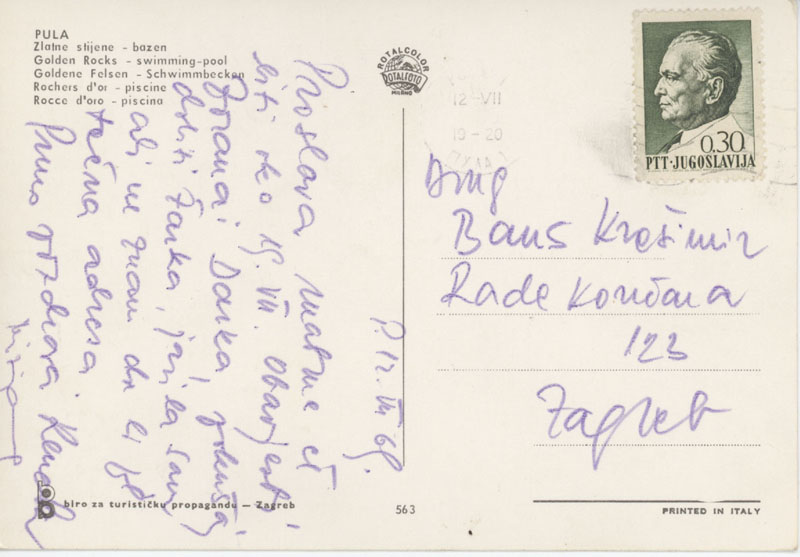 PULA
Zlatne stijene - bazen
Golden Rocks - swimming-pool
Goldene Felsen - Schwimmbecken
Rochers d'or - piscine
Rocce d'oro - piscina
ROTALCOLOR
ROTALFOTO
MILANO
12 -VII
19 - 20
0.30
PTT·JUGOSLAVIJA
P. 12. VII 69.
Proslava mature će
biti oko 19. VII. Obavjesti
Zorana i Darka, pokušaj
dobiti Žarka, javila sam
ali ne znam da li je
točna adresa
Puno pozdrava
Drug
Bans Krešimir
Rade Končara
123
Zagreb
biro za turističku propagandu – Zagreb
563
PRINTED IN ITALY